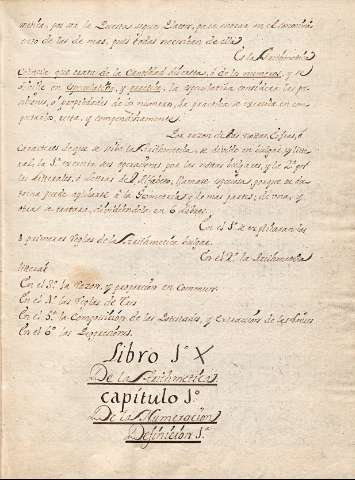 mesma, por ser la Puerta segun Platon, para entrar en el conocimi-
ento de las de mas, pues todas necesitan de ella
Es la Arithmetica
Ciencia que trata de la Cantidad discreta, ó de los numeros, y se
divide en especulativa, y practica, la especulativa considera las pa-
siones, ó propiedades de los numeros, la practica se exercita en com-
putarlos, cierta, y compendiosamente.
La razon de las notas Cifras, ó
Caracteres de que se sirve la Arithmetica, se divide en bulgar, y lite-
ral, la 1ª executa sus operaciones, por las notas bulgares, y la 2ª por
las literales, ó letras de el Alfabeto, llamase especiosa porque su doc-
trina puede aplicarse á la Geometria y de mas partes; de unas, y
otras se tratara, dividiendola, en 6 Libros.
En el 1º se explicaran las
8 primeras Reglas de la Arithmetica bulgar.
En el 2º la Arithmetica
literal
En el 3º la Razon, y proporcion en Commun.
En el 4º las Reglas de Tres
En el 5º la Composicion de las Potestades, y Extraccion de las Raices
En el 6º las Progresiones.
Libro 1º X
De la Arithmetica
capítulo 1º
De la Numeracion
Definicion 1ª